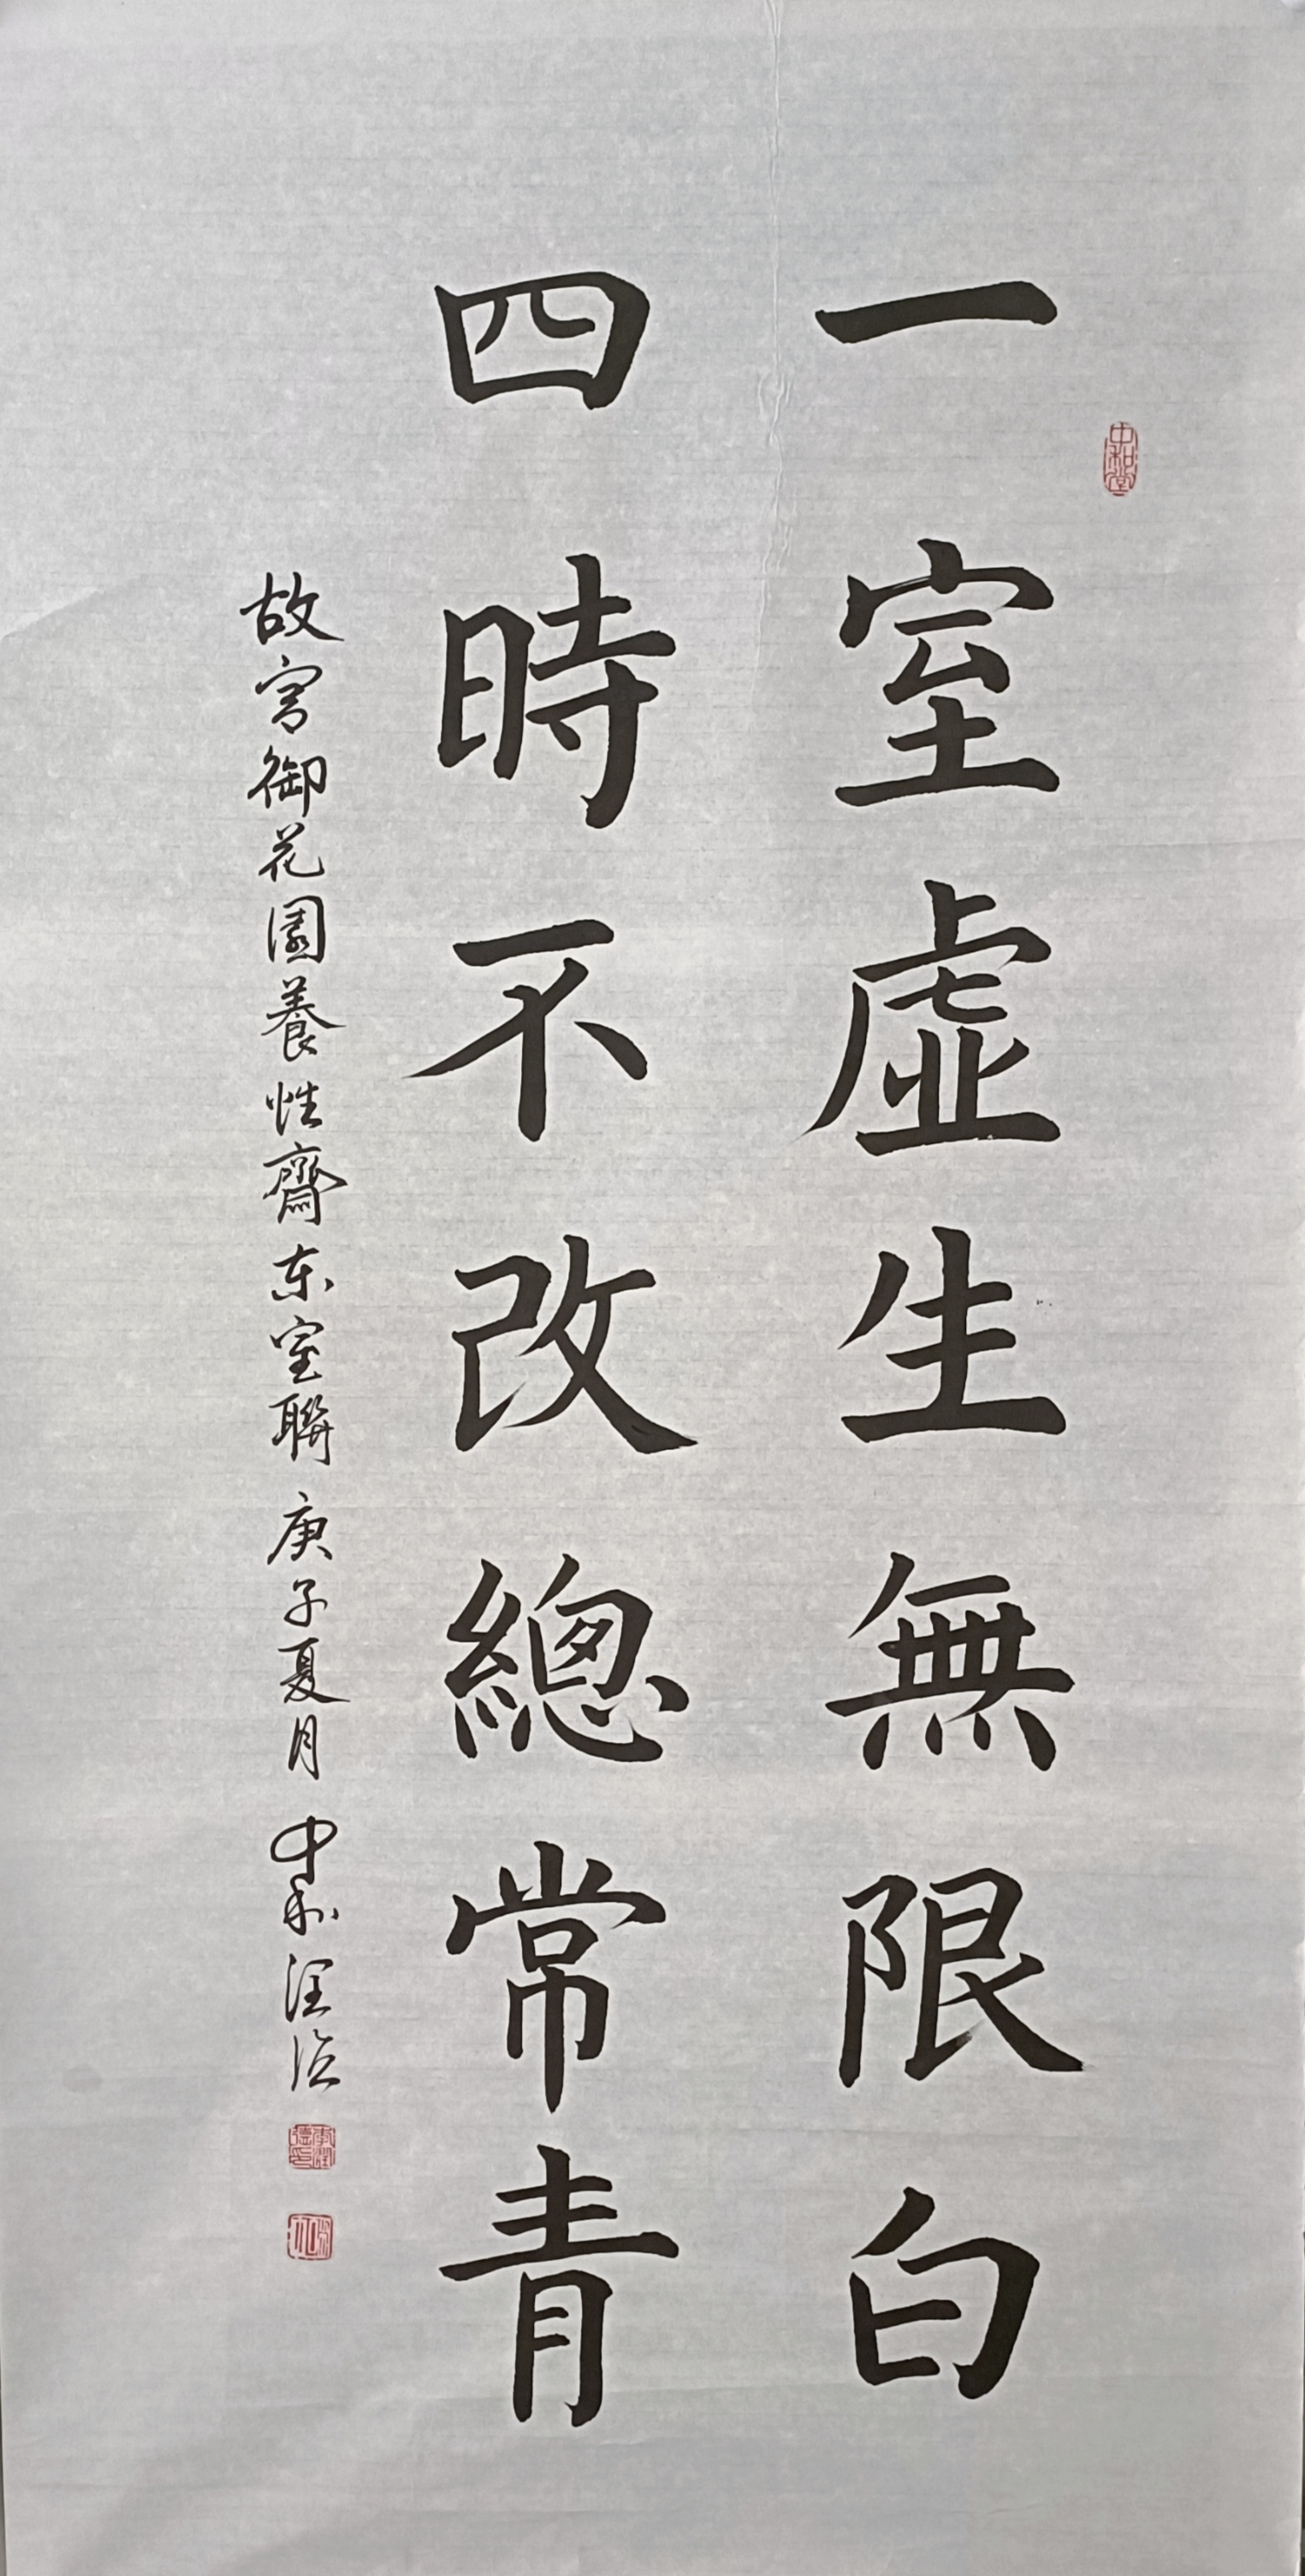 一室虛生無限白
中和堂
四時不改總常青
故宮御花園養性齋东室聯 庚子夏月 中和